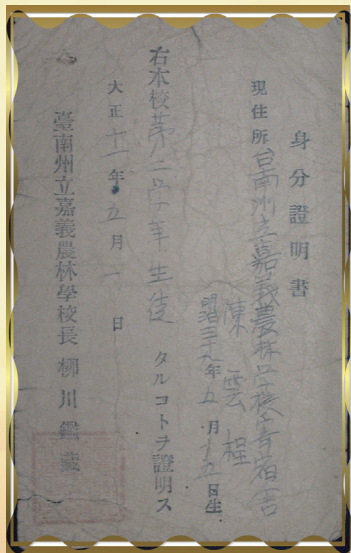 身分證明書
現住所 台南州立嘉義農林学校寄宿舎
陳雲程
明三十九年五月十五日生
右本校第二学年生徒タルコトヲ證明ス
大正十一年五月一日
臺南州立嘉義農林學校長 柳川鑑藏